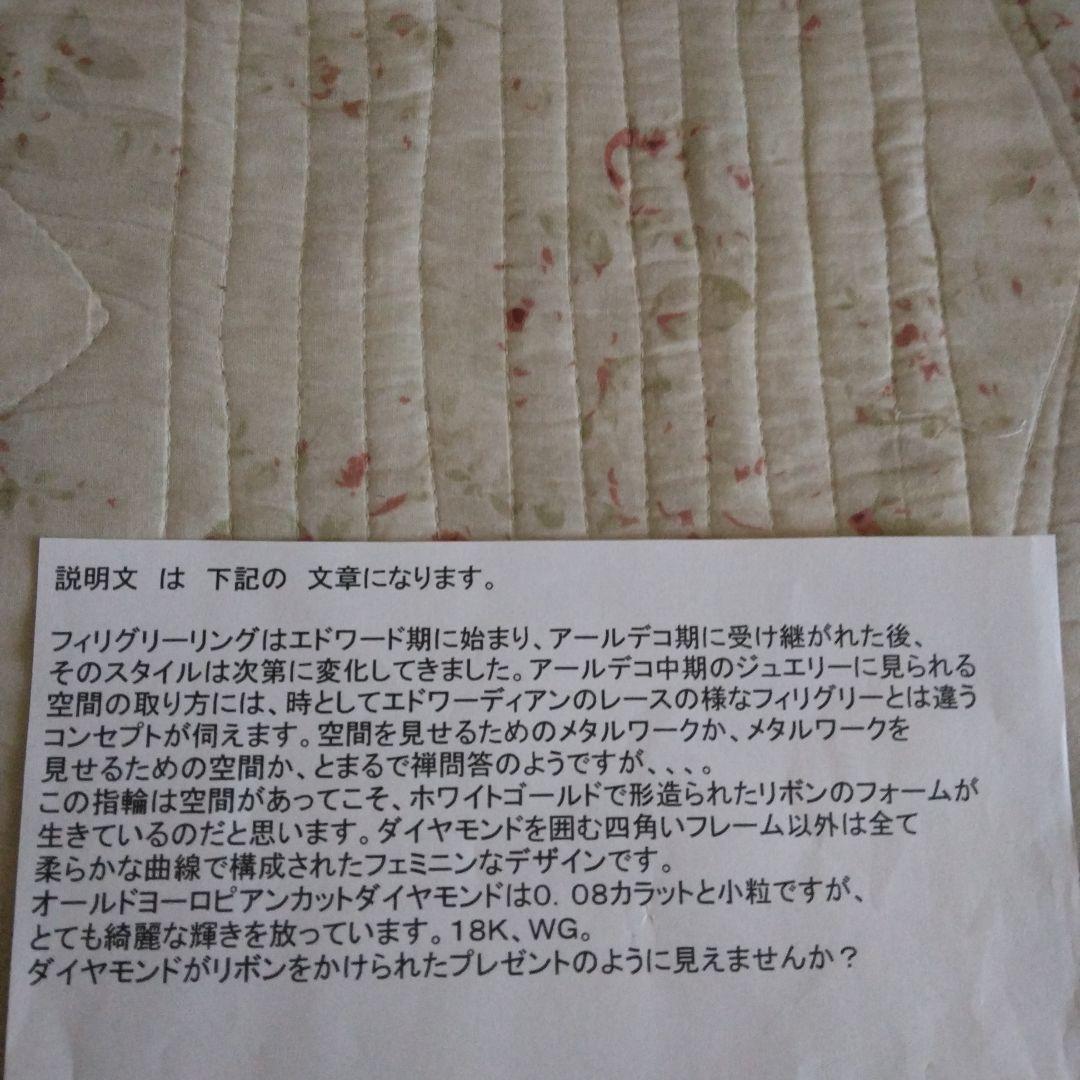 説明文　は　下記の　文章になります。
フィリグリーリングはエドワード期に始まり、アールデコ期に受け継がれた後、
そのスタイルは次第に変化してきました。アールデコ中期のジュエリーに見られる
空間の取り方には、時としてエドワーディアンのレースの様なフィリグリーとは違う
コンセプトが伺えます。空間を見せるためのメタルワークか、メタルワークを
見せるための空間か、とまるで禅問答のようですが、、、。
この指輪は空間があってこそ、ホワイトゴールドで形造られたリボンのフォームが
生きているのだと思います。ダイヤモンドを囲む四角いフレーム以外は全て
柔らかな曲線で構成されたフェミニンなデザインです。
オールドヨーロピアンカットダイヤモンドは0．08カラットと小粒ですが、
とても綺麗な輝きを放っています。18K、WG。
ダイヤモンドがリボンをかけられたプレゼントのように見えませんか？